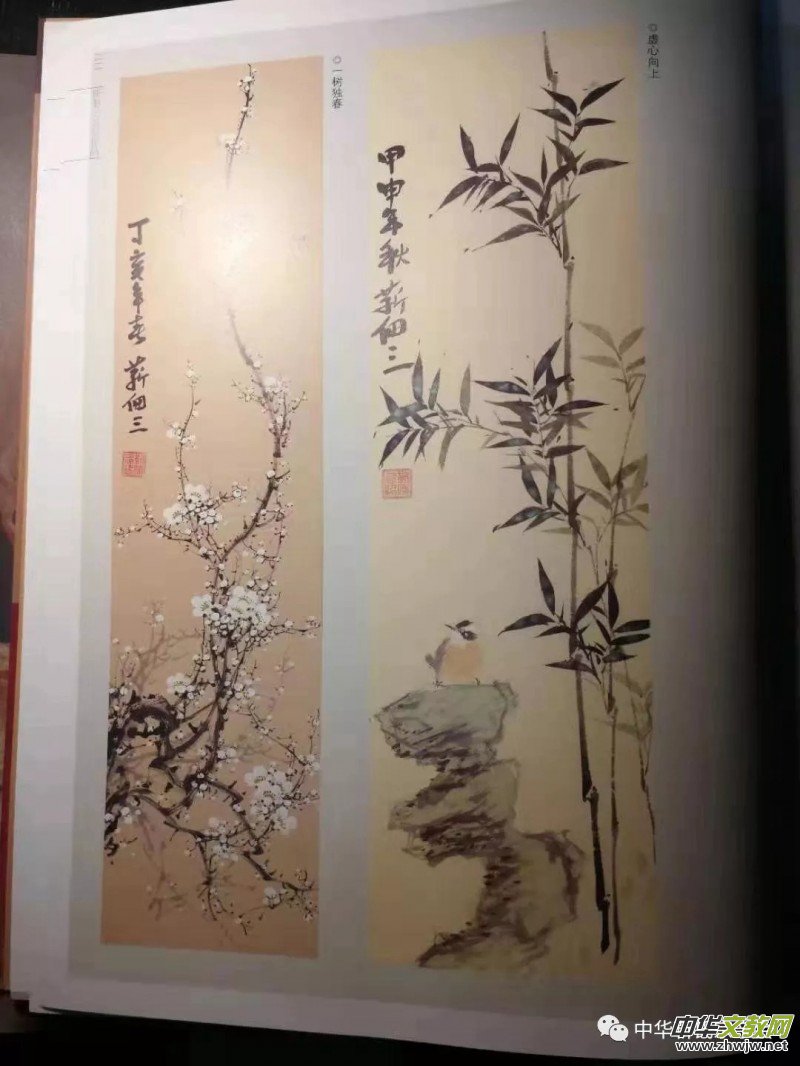 ◎一树独春
丁亥年春 薪佃三
◎虚心向上
甲申年秋 薪佃三
中华
中华文教网
www.zhwjw.net